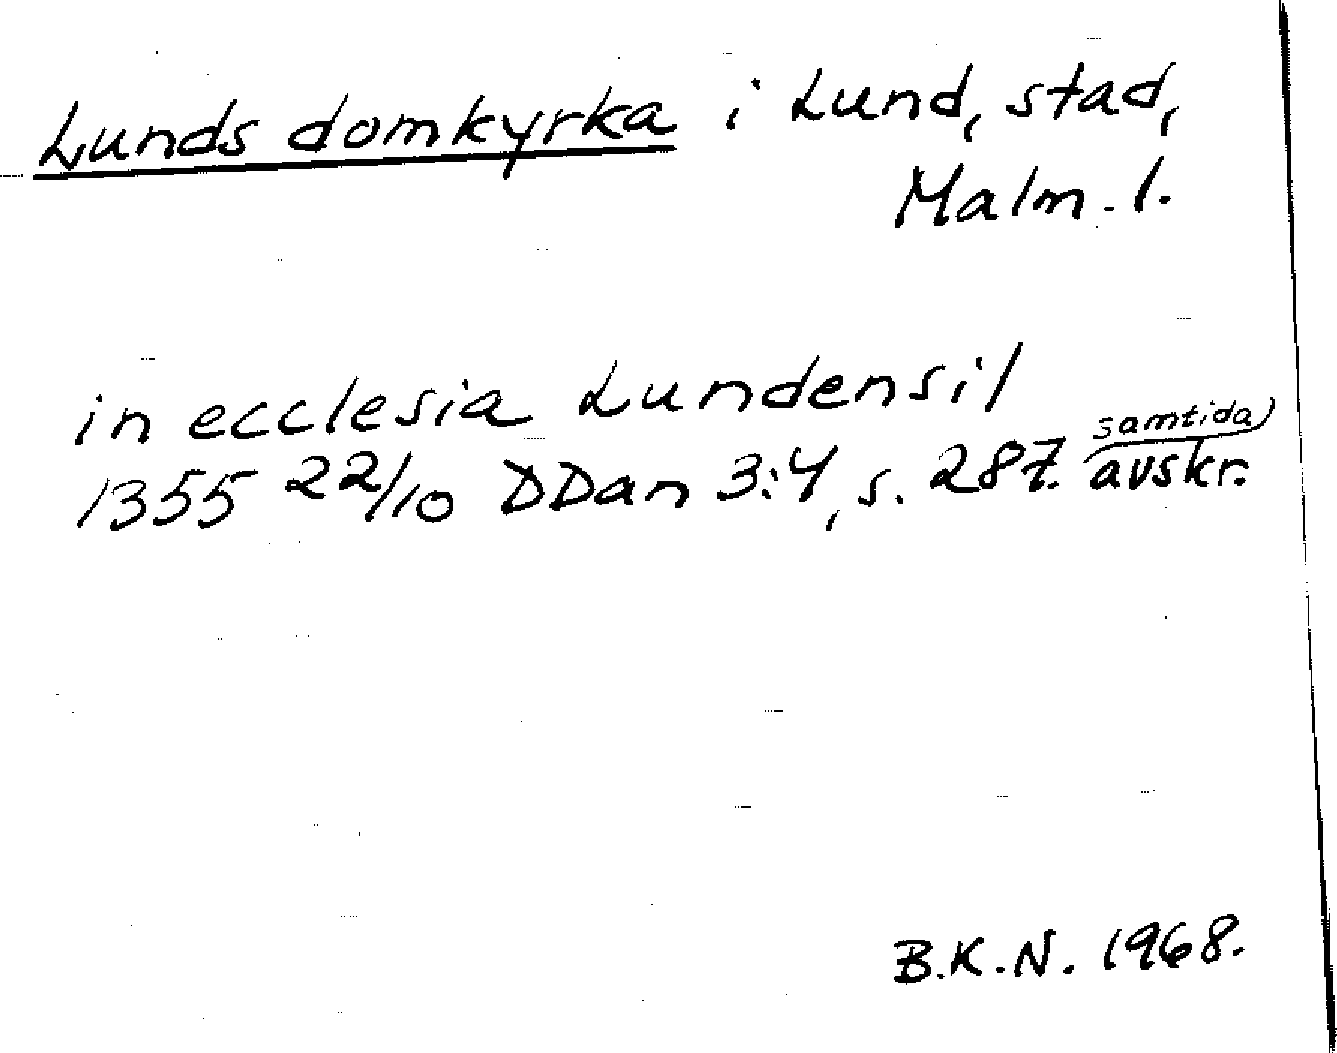 Lunds domkyrka i Lund, stad,
Malm. l.
in ecclesia Lundensi/
1355 22/10 DDan 3:4, s. 287. samtida
avskr.
B.K.N. 1968.